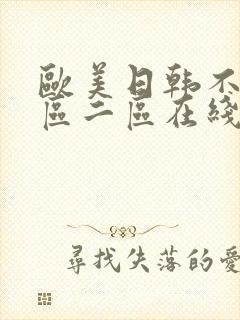 歐美日韩不
區二區在綫
尋找失落的愛